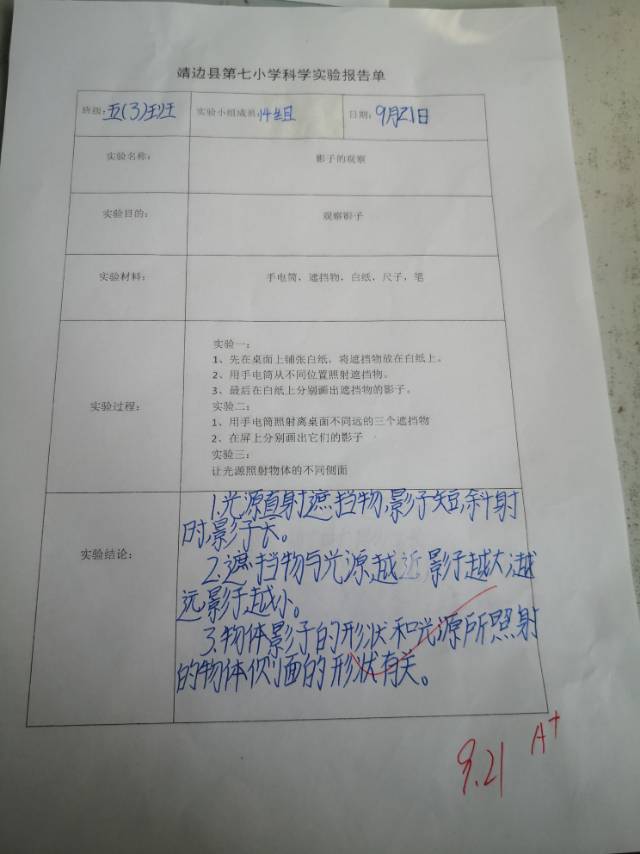 靖边县第七小学科学实验报告单
班级：五(3)班 实验小组成员 小组 日期：9月21日
实验名称： 影子的观察
实验目的： 观察影子
实验材料： 手电筒、遮挡物、白纸、尺子、笔
实验过程：
实验一：
1、先在桌面上铺张白纸，将遮挡物放在白纸上。
2、用手电筒从不同位置照射遮挡物。
3、最后在白纸上分别画出遮挡物的影子。
实验二：
1、用手电筒照射离桌面不同远的三个遮挡物
2、在屏上分别画出它们的影子
实验三：
让光源照射物体的不同侧面
实验结论：
1.光源直射遮挡物,影子短,斜射
时,影子长。
2.遮挡物与光源越近,影子越大,越
远影子越小。
3.物体影子的形状和光源所照射
的物体侧面的形状有关。
9.21 A+